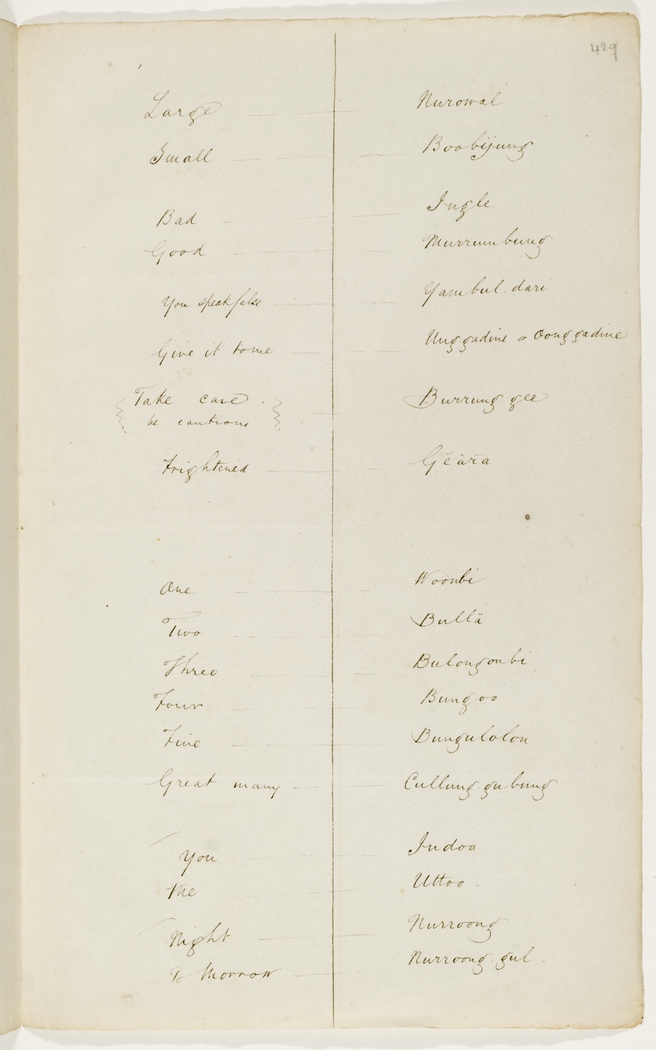 429
Large Nurowal
Small Boobijung
Bad Jugle
Good Murrumbung
You speak false Yambul. dari
Give it to me Unggadine or Oonggadine
Take care Burrung gee
be cautious
Frightened Geara
One Woonbi
Two Bullä
Three Bulongonbi
Four Bungoo
Five Bungulolou
Great many Cullung. gubung
You Indoa
Me Uttoo.
Night Nurroong
To Morrow Nurroong. gul.